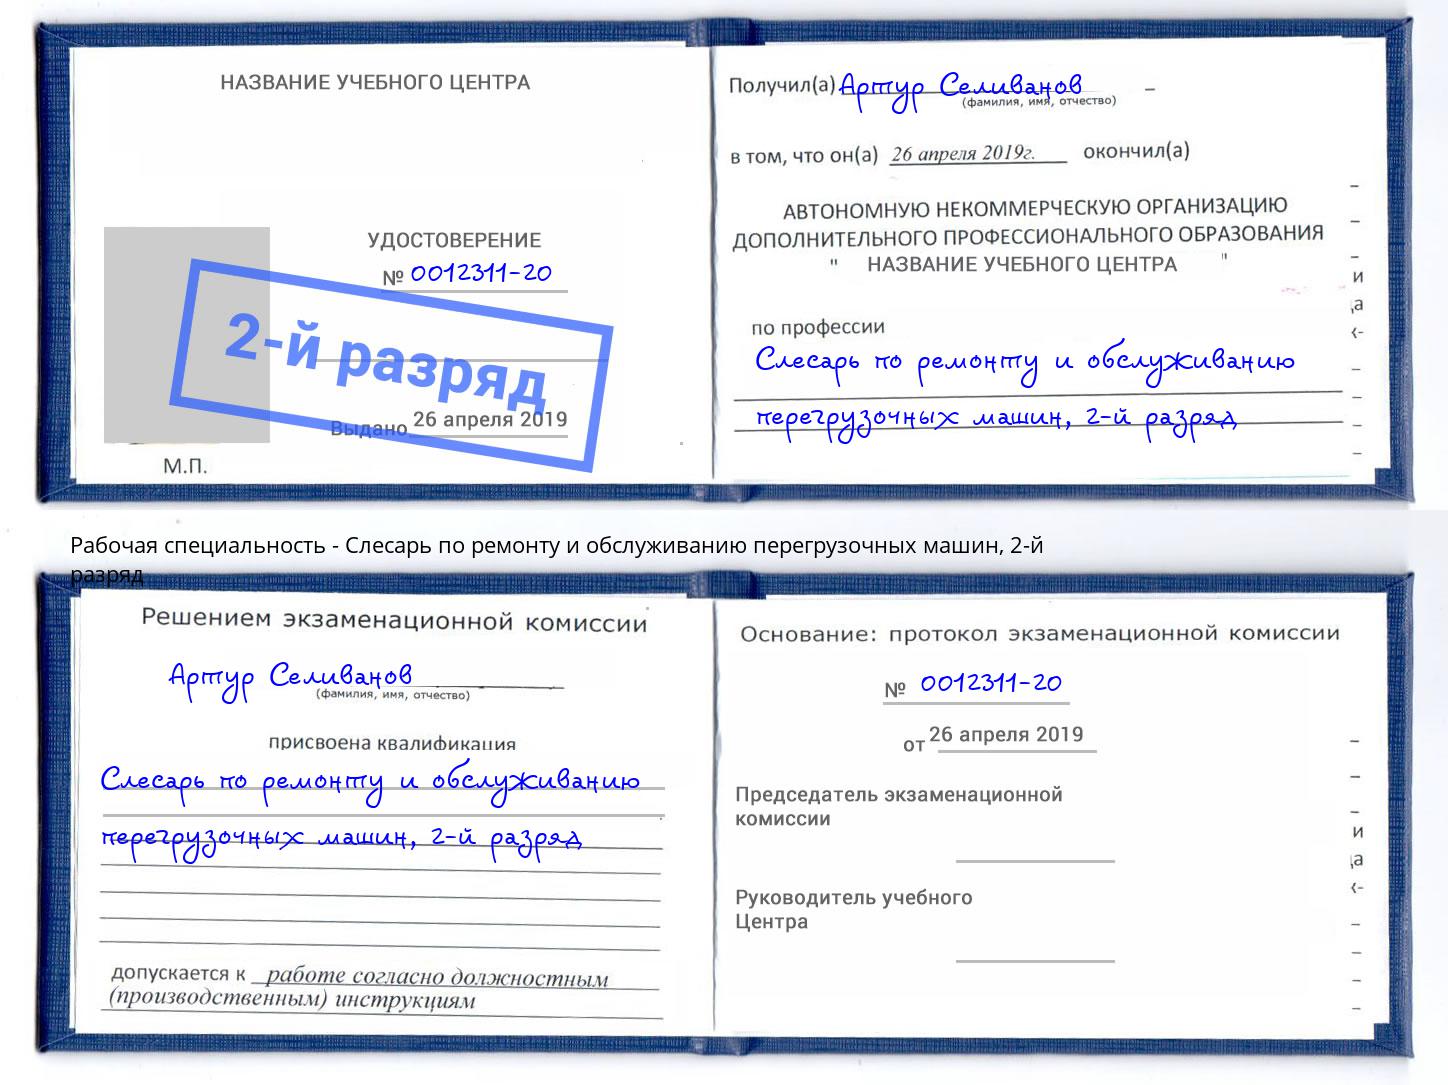 НАЗВАНИЕ УЧЕБНОГО ЦЕНТРА
УДОСТОВЕРЕНИЕ
№ 0012311-20
2-й разряд
Выдано 26 апреля 2019
М.П.
Получил(а) Артур Селиванов
(фамилия, имя, отчество)
в том, что он(а) 26 апреля 2019г. окончил(а)
АВТОНОМНУЮ НЕКОММЕРЧЕСКУЮ ОРГАНИЗАЦИЮ
ДОПОЛНИТЕЛЬНОГО ПРОФЕССИОНАЛЬНОГО ОБРАЗОВАНИЯ
" НАЗВАНИЕ УЧЕБНОГО ЦЕНТРА "
по профессии
Слесарь по ремонту и обслуживанию
перегрузочных машин, 2-й разряд
Рабочая специальность - Слесарь по ремонту и обслуживанию перегрузочных машин, 2-й
разряд
Решением экзаменационной комиссии
Артур Селиванов
(фамилия, имя, отчество)
присвоена квалификация
Слесарь по ремонту и обслуживанию
перегрузочных машин, 2-й разряд
допускается к работе согласно должностным
(производственным) инструкциям
Основание: протокол экзаменационной комиссии
№ 0012311-20
от 26 апреля 2019
Председатель экзаменационной
комиссии
Руководитель учебного
Центра